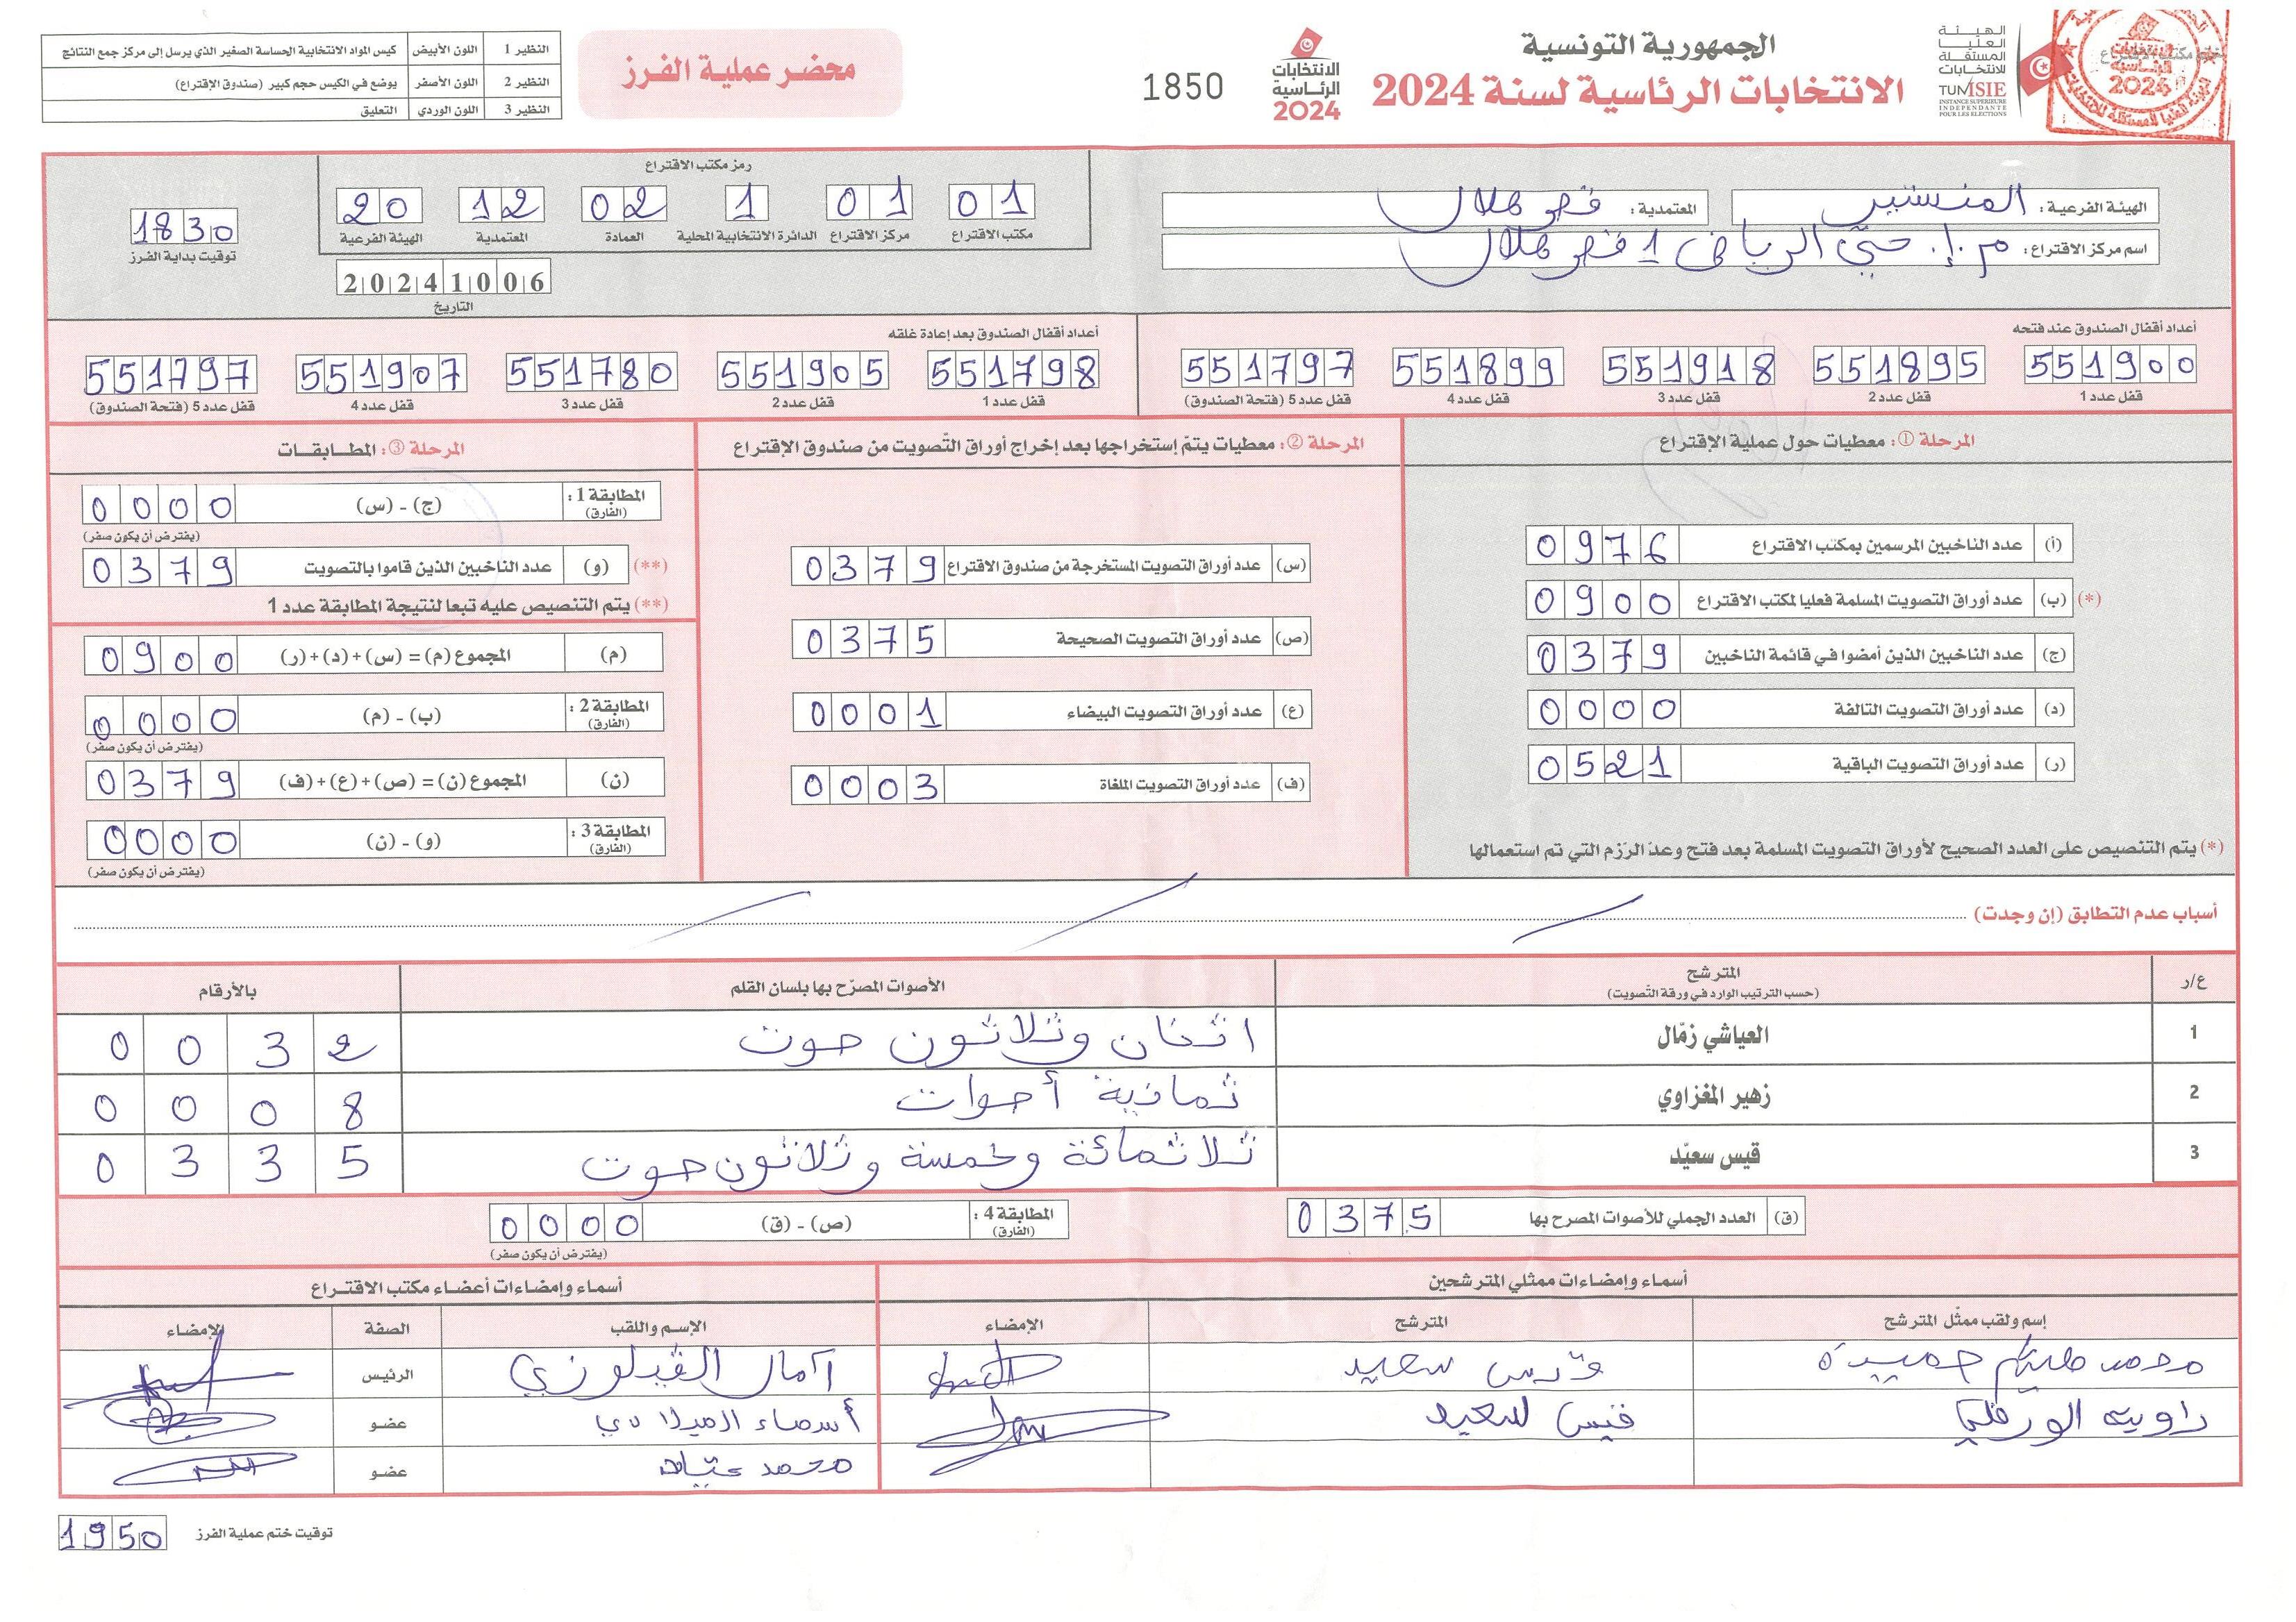 الجمهورية التونسية
الانتخابات الرئاسية لسنة 2024
الهيئة العليا المستقلة للانتخابات
TUN/ISIE
INSTANCE SUPERIEURE
INDEPENDANTE
POUR LES ELECTIONS
الانتخابات
الرئاسية
2024
1850
محضر عملية الفرز
النظير 1 اللون الأبيض كيس المواد الانتخابية الحساسة الصغير الذي يرسل إلى مركز جمع النتائج
النظير 2 اللون الأصفر يوضع في الكيس حجم كبير (صندوق الإقتراع)
النظير 3 اللون الوردي التعليق
الهيئة الفرعية: المنستير
المعتمدية: قصر هلال
اسم مركز الاقتراع: م.إ. حي الرياض 1 قصر هلال
رمز مكتب الاقتراع
01 مكتب الاقتراع
01 مركز الاقتراع
1 الدائرة الانتخابية المحلية
02 العمادة
12 المعتمدية
20 الهيئة الفرعية
20241006
التاريخ
1830
توقيت بداية الفرز
أعداد أقفال الصندوق عند فتحه
551900 قفل عدد 1
551895 قفل عدد 2
551918 قفل عدد 3
551899 قفل عدد 4
551797 قفل عدد 5 (فتحة الصندوق)
أعداد أقفال الصندوق بعد إعادة غلقه
551798 قفل عدد 1
551905 قفل عدد 2
551780 قفل عدد 3
551907 قفل عدد 4
551797 قفل عدد 5 (فتحة الصندوق)
المرحلة ①: معطيات حول عملية الإقتراع
(أ) عدد الناخبين المرسمين بمكتب الاقتراع 0976
(*) (ب) عدد أوراق التصويت المسلمة فعليا لمكتب الاقتراع 0900
(ج) عدد الناخبين الذين أمضوا في قائمة الناخبين 0379
(د) عدد أوراق التصويت التالفة 0000
(ر) عدد أوراق التصويت الباقية 0521
(*) يتم التنصيص على العدد الصحيح لأوراق التصويت المسلمة بعد فتح وعدّ الرّزم التي تم استعمالها
المرحلة ②: معطيات يتمّ إستخراجها بعد إخراج أوراق التّصويت من صندوق الإقتراع
(س) عدد أوراق التصويت المستخرجة من صندوق الاقتراع 0379
(ص) عدد أوراق التصويت الصحيحة 0375
(ع) عدد أوراق التصويت البيضاء 0001
(ف) عدد أوراق التصويت الملغاة 0003
المرحلة ③: المطابقات
المطابقة 1: (الفارق) (ج) - (س) 0000
(يفترض أن يكون صفر)
(**) (و) عدد الناخبين الذين قاموا بالتصويت 0379
(**) يتم التنصيص عليه تبعا لنتيجة المطابقة عدد 1
(م) المجموع (م) = (س)+(د)+(ر) 0900
المطابقة 2: (الفارق) (ب) - (م) 0000
(يفترض أن يكون صفر)
(ن) المجموع (ن) = (ص)+(ع)+(ف) 0379
المطابقة 3: (الفارق) (و) - (ن) 0000
(يفترض أن يكون صفر)
أسباب عدم التطابق (إن وجدت)
ع/ر المترشح (حسب الترتيب الوارد في ورقة التّصويت) الأصوات المصرّح بها بلسان القلم بالأرقام
1 العياشي زمّال اثنان وثلاثون صوت 0032
2 زهير المغزاوي ثمانية أصوات 0008
3 قيس سعيّد ثلاثمائة وخمسة وثلاثون صوت 0335
(ق) العدد الجملي للأصوات المصرح بها 0375
المطابقة 4: (الفارق) (ص) - (ق) 0000
(يفترض أن يكون صفر)
أسماء وإمضاءات ممثلي المترشحين
إسم ولقب ممثّل المترشح المترشح الإمضاء
محمد حميدة قيس سعيد
راوية الورفلي قيس سعيد
أسماء وإمضاءات أعضاء مكتب الاقتراع
الإسم واللقب الصفة الإمضاء
آمال القبلوزي الرئيس
أسماء الميلادي عضو
محمد عضو
توقيت ختم عملية الفرز 1950